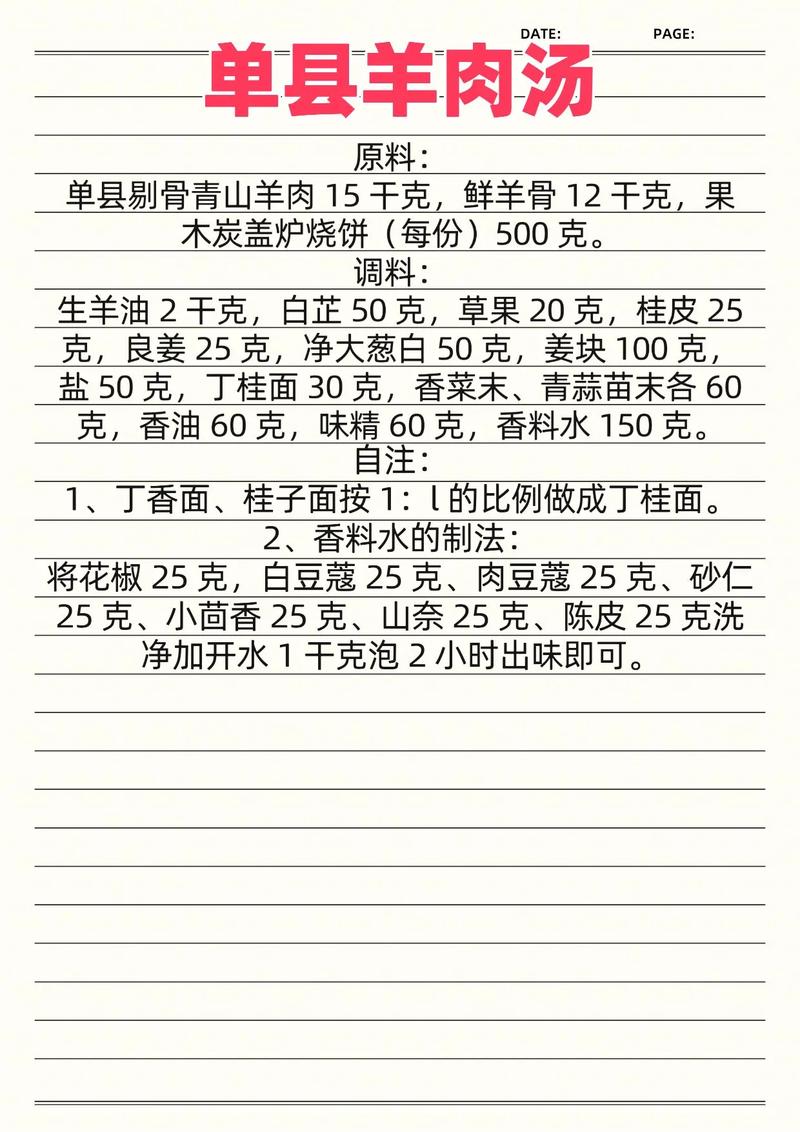 DATE: PAGE:
单县羊肉汤
原料：
单县剔骨青山羊肉 15 干克，鲜羊骨 12 干克，果
木炭盖炉烧饼（每份）500 克。
调料：
生羊油 2 干克，白芷 50 克，草果 20 克，桂皮 25
克，良姜 25 克，净大葱白 50 克，姜块 100 克，
盐 50 克，丁桂面 30 克，香菜末、青蒜苗末各 60
克，香油 60 克，味精 60 克，香料水 150 克。
自注：
1、丁香面、桂子面按 1：l 的比例做成丁桂面。
2、香料水的制法：
将花椒 25 克，白豆蔻 25 克、肉豆蔻 25 克、砂仁
25 克、小茴香 25 克、山奈 25 克、陈皮 25 克洗
净加开水 1 干克泡 2 小时出味即可。